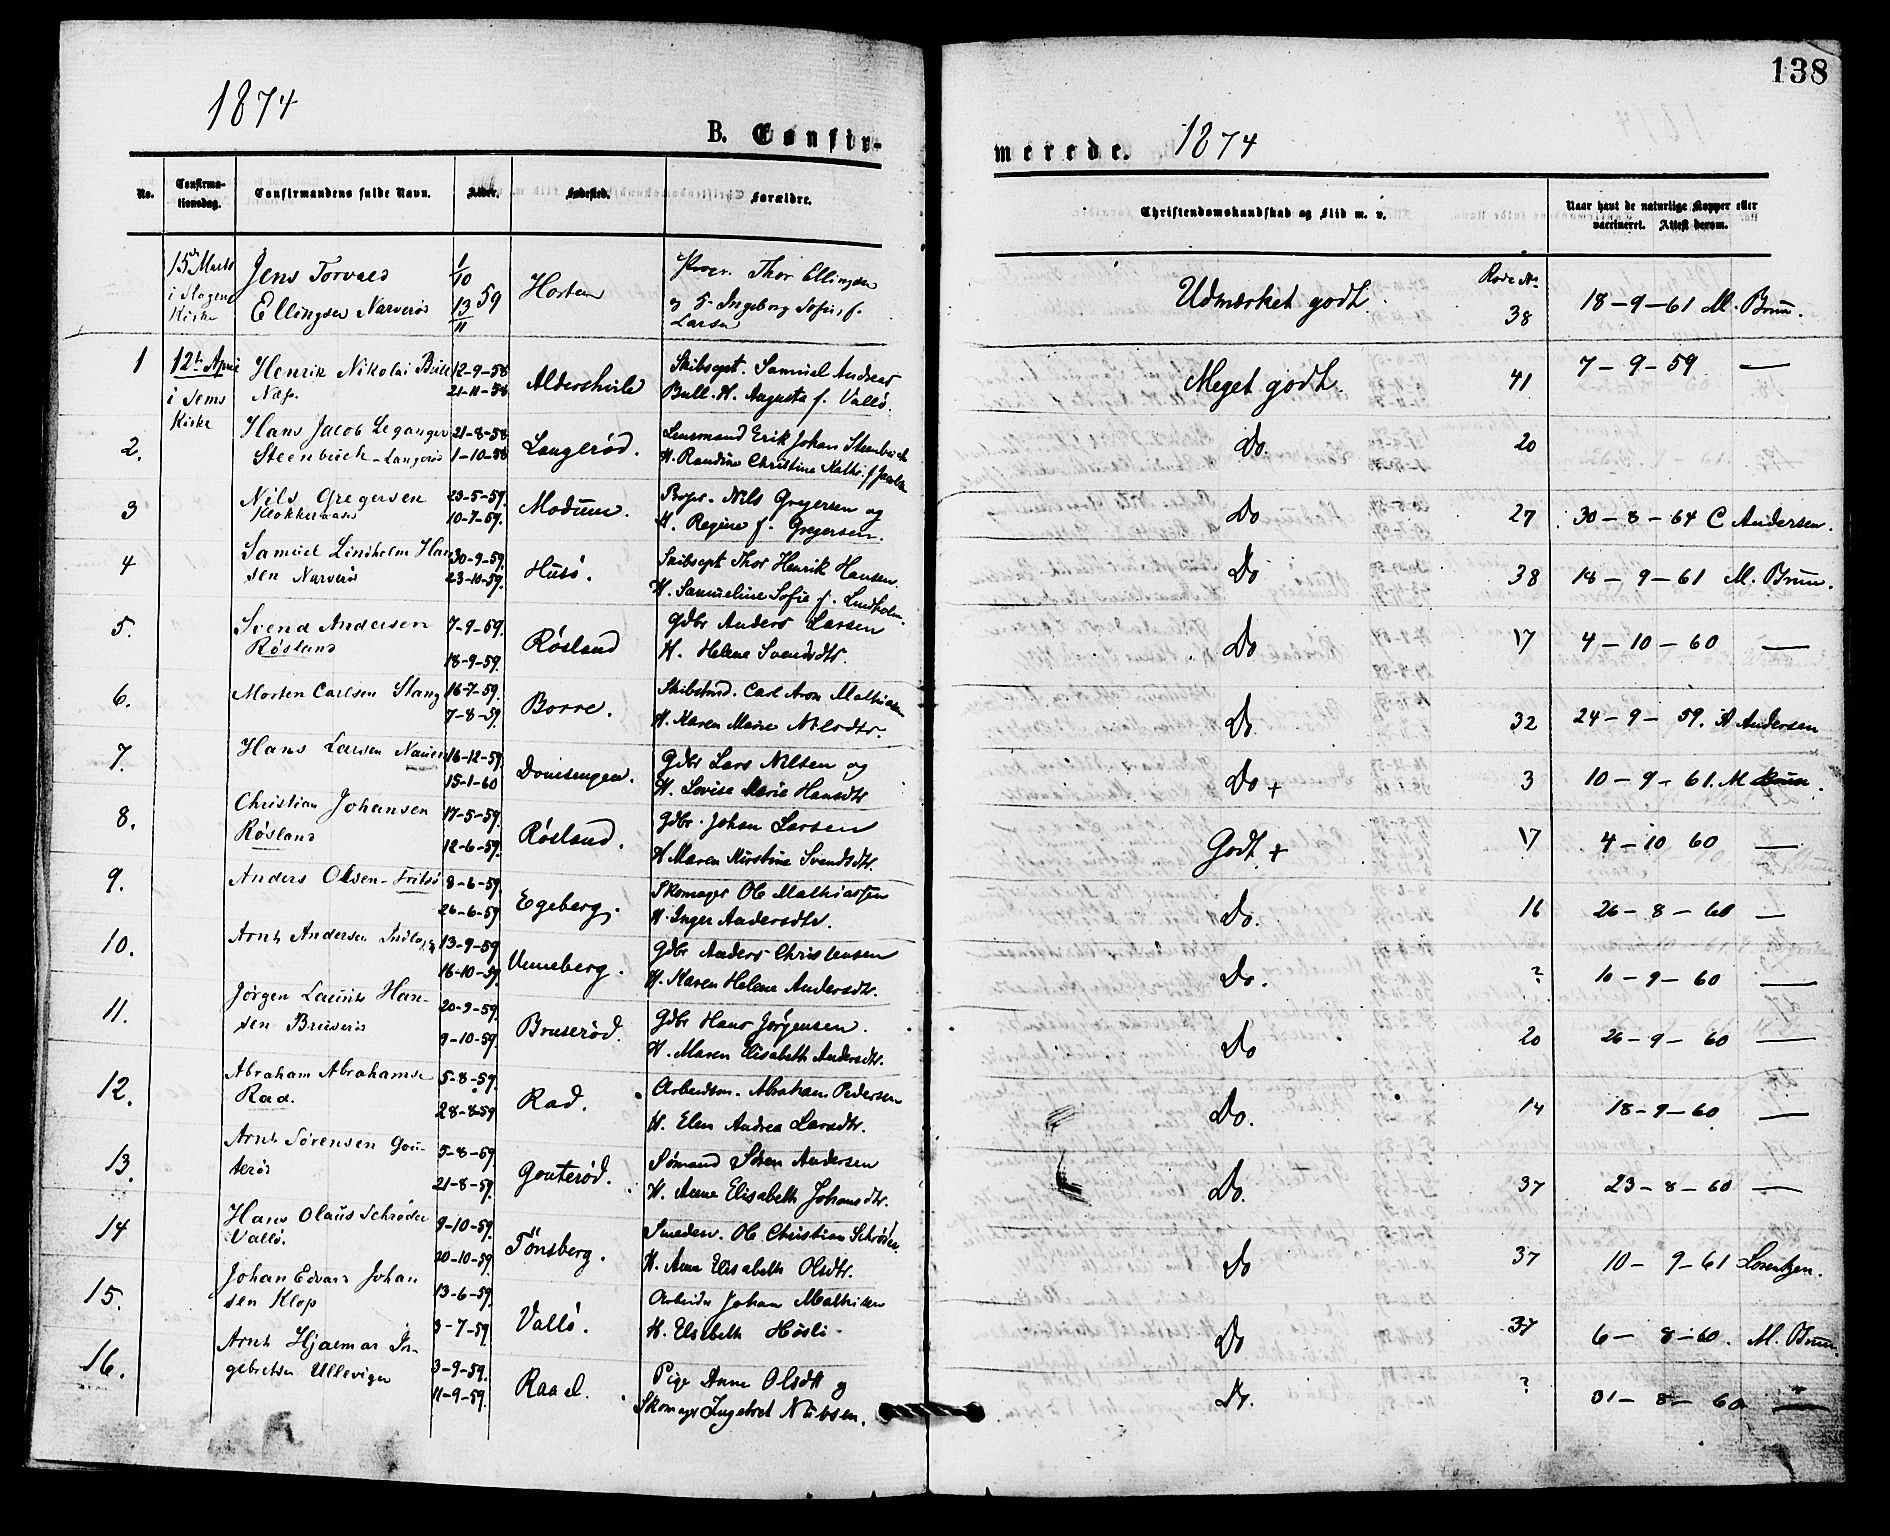 138
1874
B. Confir-
merede. 1874
No.
Confirma-
tionsdag.
Confirmandens fulde Navn.
Alder.
Fødested.
Forældre.
Christendomskundskab og Flid m. v.
Naar havt de naturlige Kopper eller
vaccineret. Attest derom.
15de Marts
i Slagens
Kirke
Jens Torvald
Ellingsen Narverød
1/10
13/11 59
Horten
Thor Ellingsen
og Ingeborg Sofie, f.
Larsen
Udmærket godt.
Rode No
38
18-9-61 M. Bruu.
1
12te April
i Sems
Kirke
Henrik Nikolai Bull
Næs.
12-9-58
21-11-58
Aldershvile
Skibscpt. Samuel Andreas
Bull. H. Augusta f. Vallø.
Meget godt.
41
7-9-59 —
2.
Hans Jacob Leganger
Steenbuch - Langerød
21-8-58
1-10-58
Langerød.
Lensmand Erik Johan Steenbuch
H. Randine Christine Kathr. f Jacobsen
Do.
20
3
Nils Gregersen
Klokkeraasen
23-5-59.
10-7-59.
Modum.
Nils Gregersen og
H. Regine f. Gregersen.
Do
27
30-8-64 C Andersen.
4
Samuel Lindholm Han
sen Narverød
30-9-59.
23-10-59.
Husø.
Skibscpt Thor Henrik Hansen
H. Samueline Sofie f. Lindholm.
Do
38
18-9-61 M. Bruu.
5.
Svend Andersen
Røsland
7-9-59.
18-9-59.
Røsland
Gdbr Anders Larsen
H. Helene Svendsdtr.
Do
17
4-10-60 —
6.
Morten Carlsen Stang
16-7-59.
7-8-59.
Borre.
Skibstmd. Carl Aron Mathiasen
H. Karen Marie Nilsdtr.
Do
32
24-9-59. A Andersen
7.
Hans Larsen Nauen
16-12-59.
15-1-60
Gdbr Lars Nilsen og
H. Lovise Marie Hansdtr
Do +
3
10-9-61. M Bruu.
8.
Christian Johansen
Røsland
17-5-59.
12-6-59.
Røsland.
Gdbr. Johan Larsen
H Maren Kirstine Svendsdtr.
Godt +
17
4-10 60 —
9.
Anders Olsen - Fritsø
8-6-59.
26-6-59
Egeberg.
Skomager Ole Mathiassen
H. Inger Andersdtr.
Do.
16
26-8-60 —
10.
Arnt Andersen
13-9-59
16-10-59.
Unneberg.
Gdbr Anders Christensen
H. Karen Helene Andersdtr.
Do.
?
10-9-60 —
11.
Jørgen Laurits Han-
sen Bruserød
20-9-59.
9-10-59.
Bruserød.
Gdbr Hans Jørgensen.
H. Maren Elisabeth Andersdtr.
Do
20
26-9-60 —
12.
Abraham Abrahamsen
Rad.
5-8-59.
28-8-59
Rad.
Arbeidsm. Abraham Pedersen
H. Elen Andrea Larsdtr.
Do.
14
18-9-60 —
13.
Arnt Sørensen Gou-
terød
5-8-59.
21-8-59.
Gouterød.
Sømand Søren Andersen
H. Anne Elisabeth Johansdtr.
Do.
37
23-8-60 —
14
Hans Olaus Schrøder
Vallø.
9-10-59.
20-10-59.
Tönsberg.
Smedesv. Ole Christian Schrøder.
H. Anne Elisabeth Olsdtr.
Do
37
10-9-61 Lorentzen.
15.
Johan Edvard Johan
sen Klop
13-6-59.
3-7-59.
Vallø.
Arbeider Johan Mathisen
H. Elisabeth Høsli
Do
37
6-8-60. M. Bruu.
16.
Arnt Hjalmar In-
gebretsen Ullevigen
3-9-59.
11-9-59.
Raael.
Pige Anne Olsdtr og
Skomager Ingebret Nilsen.
Do.
?
31-8-60 —